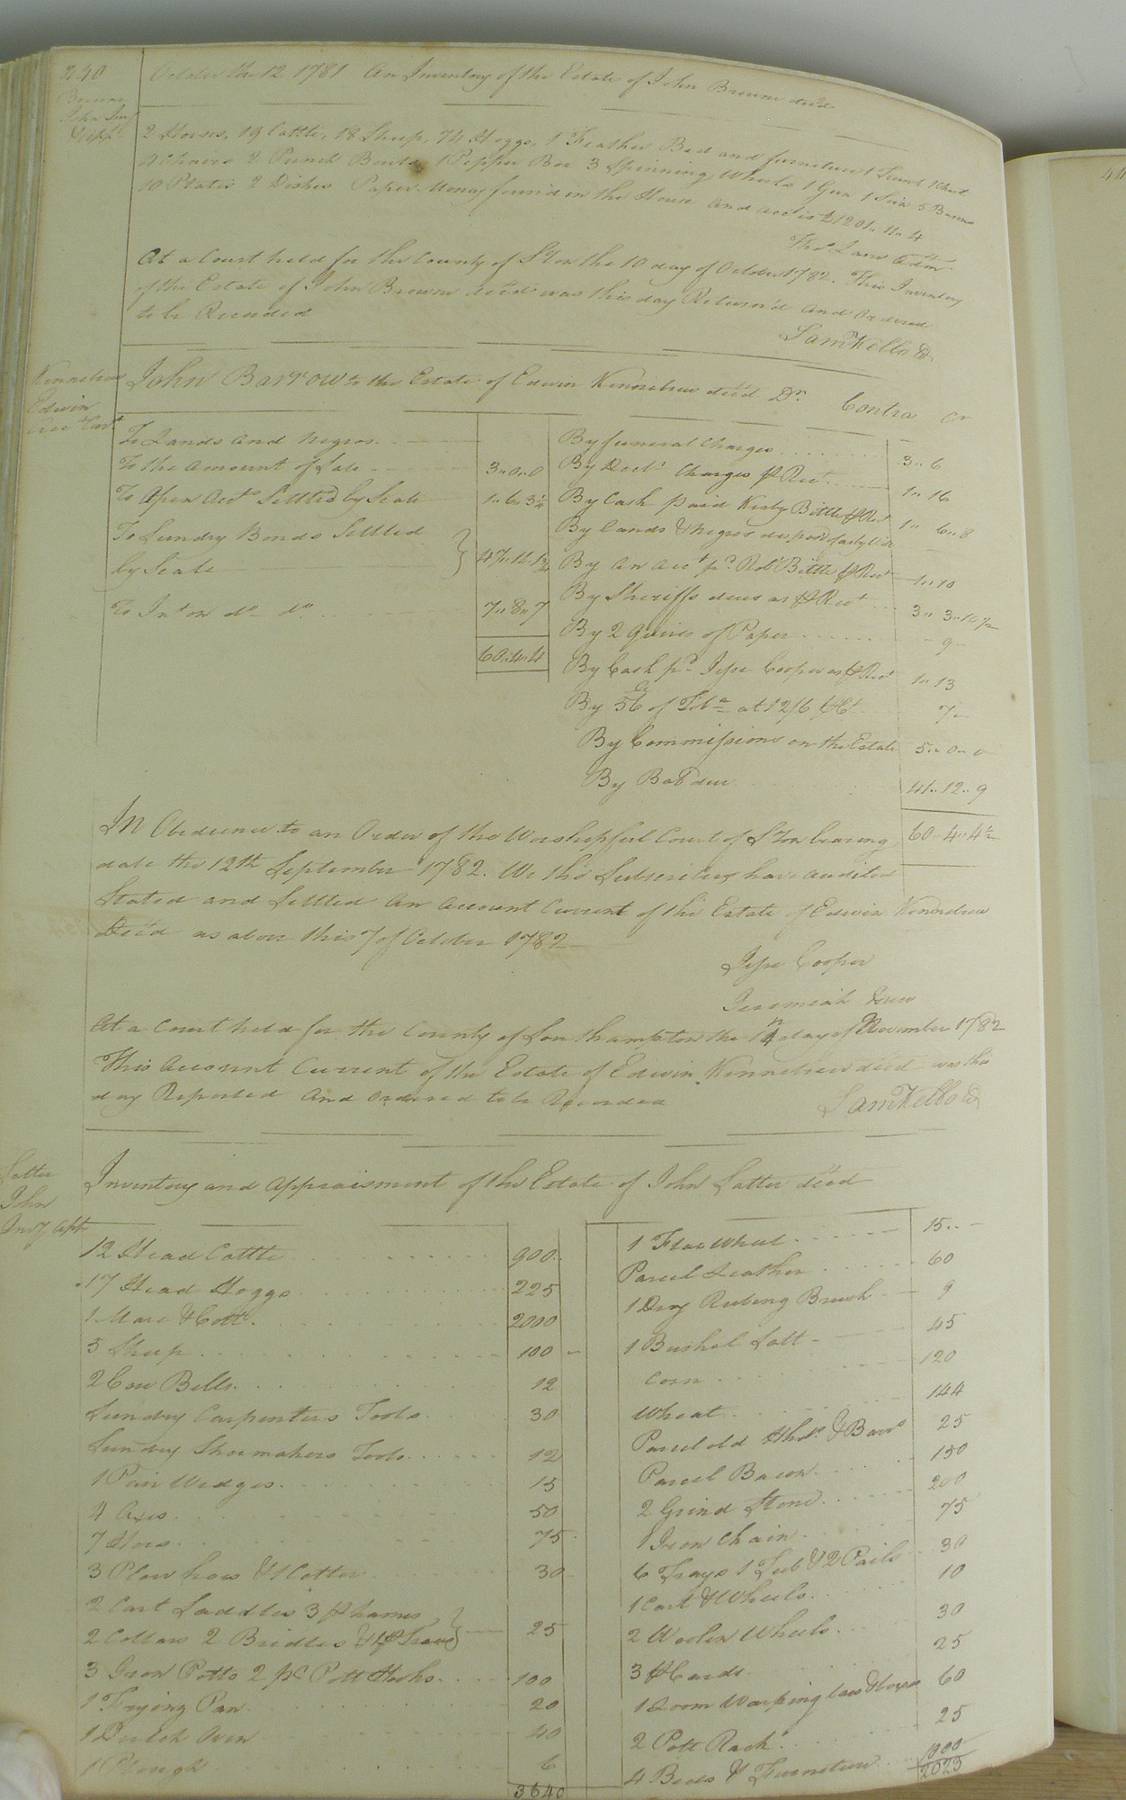 240
October the 12 1781 An Inventory of the Estate of John Brown decd
Brown
John Inv
& appt
2 Horses, 19 Cattle, 18 Sheep, 74 Hoggs, 1 Feather Bed and furniture 1 Trunk 1 Chest
4 Chairs 2 Punch Bowls 1 Pepper Box 3 Spinning Wheels 1 Gun 5
10 Plates 2 Dishes Paper Money found in the House and acct is £1201.. 11.. 4
Thos Lane Admr
At a Court held for the County of S'Ton the 10 day of October 1782. This Inventory
of the Estate of John Brown decd was this day Return'd and Ordered
to be Recorded
Saml Kello Ck
Kinnebrew
Edwin
acct Curt
John Barrow to the Estate of Edwin Kinnebrew decd Dr. Contra Cr
To Lands and Negros
To the amount of Sale 3..0..0
To Open Accts Settled by Scale 1..6..3½
To Sundry Bonds Settled
by Scale } 47..11..1½
To Int on do do 7..8..7
60..4..4
By funeral Charges 3..6
By Doctr Charges pr Rect 1..16
By Cash paid Kirby Bittle pr Rect 1.. 6..8
By Lands & Negros
By an acct pd Robt Bittle pr Rect 1..10
By Sheriffs dues as pr Rect 3..3..10½
By 2 Quires of Paper 9
By Cash pd Jesse Cooper as pr Rect 1..13
By 56 of Toba at 12/6 pr Ct 7
By Commissions on the Estate 5..0..0
By Bal due 41..12..9
60..4..4½
In Obedience to an Order of the Worshipful Court of S'Ton bearing
date the 12th September 1782. We the Subscribers have audited
Stated and Settled an account Current of the Estate of Edwin Kinnebrew
Decd as above this 7 of October 1782
Jesse Cooper
Jeremiah Drew
At a Court held for the County of Southampton the 14 day of November 1782
This Account Current of the Estate of Edwin Kinnebrew decd was this
day Reported and Ordered to be Recorded
Saml Kello Ck
Latter
John
Invy apt
Inventory and Appraisment of the Estate of John Latter decd
12 Head Cattle 900
17 Head Hoggs 225
1 Mare & Colt 2000
5 Sheep 100
2 Cow Bells 12
Sundry Carpenters Tools 30
Sundry Shoemakers Tools 12
1 Pair Wedges 15
4 Axes 50
7 Hoes 75
3 Plow hoes & 1 Colter 30
2 Cart Saddles 3 pr Hames
2 Collars 2 Bridles & 1 pr Traces } 25
3 Iron Potts 2 pr Pott Hooks 100
1 Frying Pan 20
1 Dutch Oven 40
1 Plough 6
3640
1 Flax Wheel 15
Parcel Leather 60
1 Dry Rubing Brush 9
1 Bushel Salt 45
Corn 120
Wheat 144
Parcel old Hhds & Barrs 25
Parcel Bacon 150
2 Grind Stone 200
1 Iron Chain 75
6 Trays 1 Tub & 2 Pails 30
1 Cart & Wheels 10
2 Woolen Wheels 30
3 pr Cards 25
1 Loom Warping bars & boxes 60
2 Pott Racks 25
4 Beds & Furniture 1000
2023